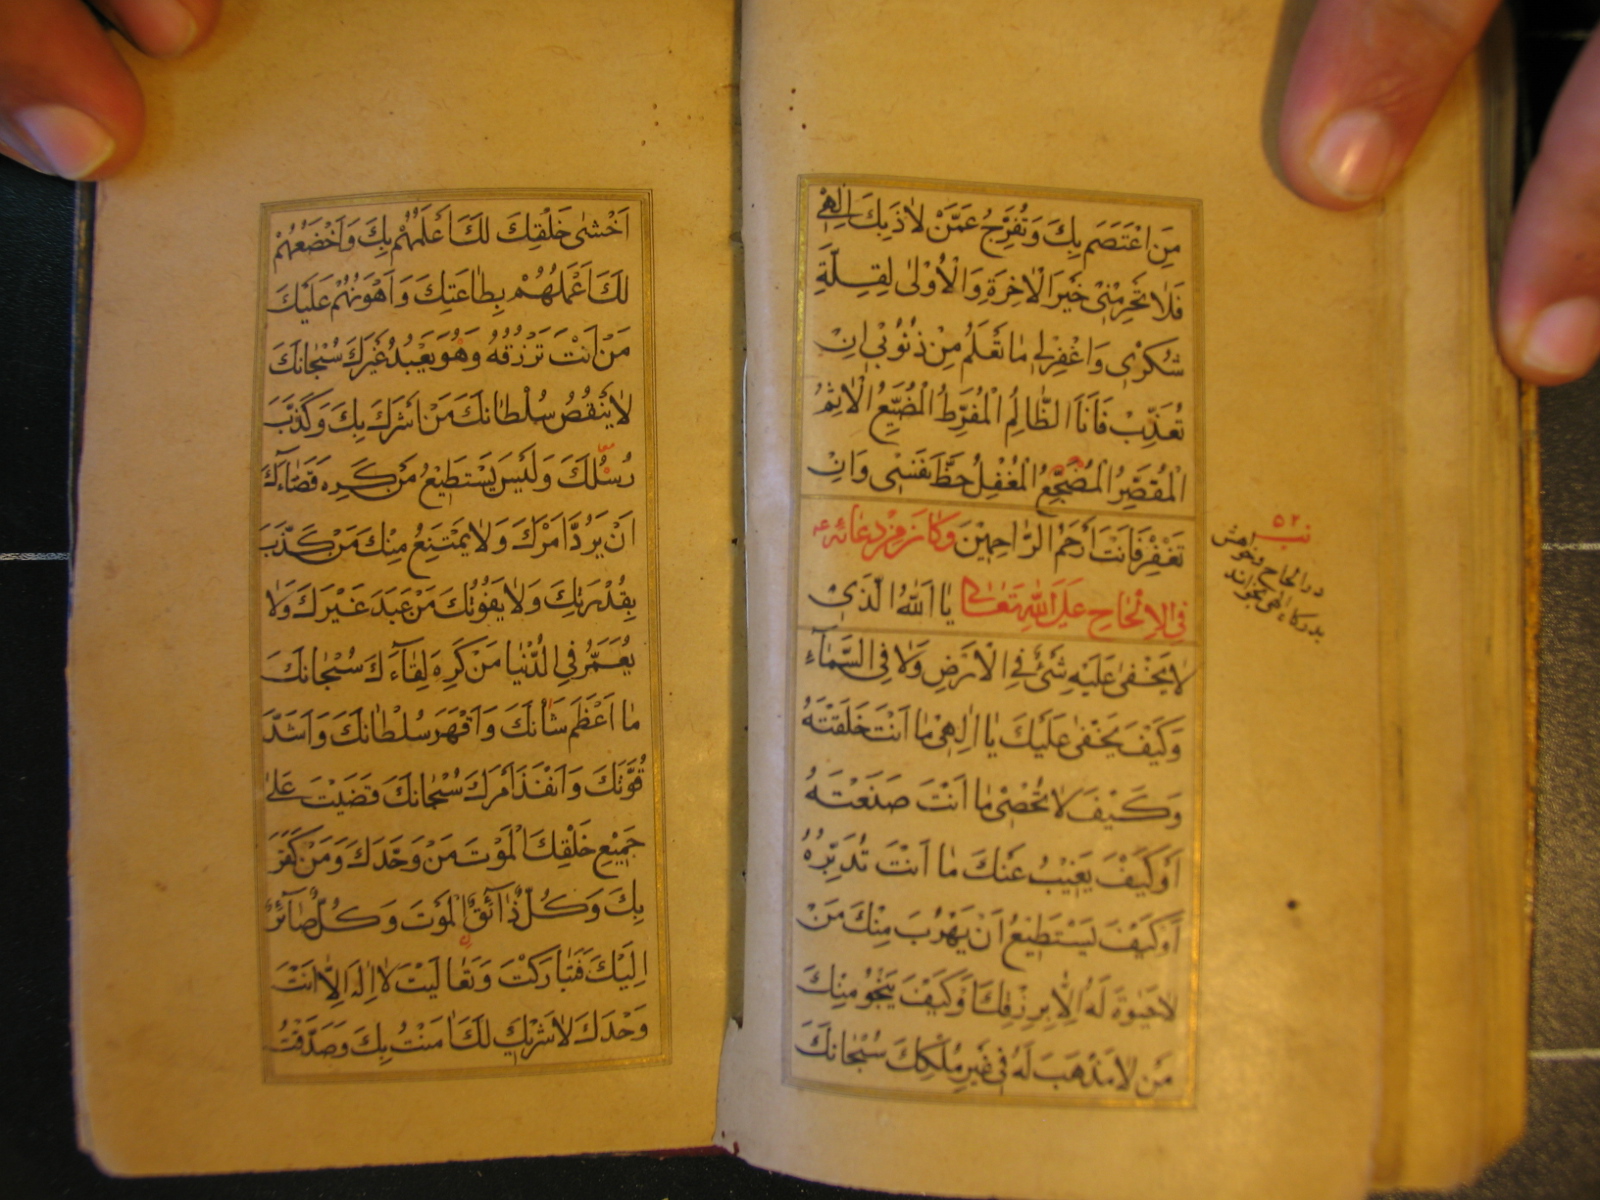 مِنَ اعْتَصَمَ بِكَ وَتُفَرِّجُ عَمَّنْ لاٰذَ بِكَ اِلٰهِي
فَلاٰ تَحْرِمْنِي خَيْرَ الْاٰخِرَةِ وَالْاُولٰى لِقِلَّةِ
شُكْرِي وَاغْفِرْ لِي مٰا تَعْلَمُ مِنْ ذُنُوبِي اِنْ
تُعَذِّبْ فَاَنَا الظّٰالِمُ الْمُفَرِّطُ الْمُضَيِّعُ الْاٰثِمُ
الْمُقَصِّرُ الْمُضَجِّعُ الْمُغْفِلُ حَظَّ نَفْسِي وَاِنْ
تَغْفِرْ فَاَنْتَ اَرْحَمُ الرّٰاحِمِينَ وَكٰانَ مِنْ دُعٰائِهِ ع
فِي الْاِلْحٰاحِ عَلَى اللّٰهِ تَعٰالٰى يٰا اَللّٰهُ الَّذِي
لاٰ يَخْفٰى عَلَيْهِ شَيْءٌ فِي الْاَرْضِ وَلاٰ فِي السَّمٰآءِ
وَكَيْفَ يَخْفٰى عَلَيْكَ يٰا اِلٰهِي مٰا اَنْتَ خَلَقْتَهُ
وَكَيْفَ لاٰ تُحْصِي مٰا اَنْتَ صَنَعْتَهُ
اَوْ كَيْفَ يَغِيبُ عَنْكَ مٰا اَنْتَ تُدَبِّرُهُ
اَوْ كَيْفَ يَسْتَطِيعُ اَنْ يَهْرُبَ مِنْكَ مَنْ
لاٰ حَيٰوةَ لَهُ اِلاّٰ بِرِزْقِكَ اَوْ كَيْفَ يَنْجُو مِنْكَ
مَنْ لاٰ مَذْهَبَ لَهُ فِي غَيْرِ مُلْكِكَ سُبْحٰانَكَ
٥٢
در الحاح و خواهش
بدركاه الهى بخواند
اَخْشٰى خَلْقِكَ لَكَ اَعْلَمُهُمْ بِكَ وَاَخْضَعُهُمْ
لَكَ اَعْمَلُهُمْ بِطٰاعَتِكَ وَاَهْوَنُهُمْ عَلَيْكَ
مَنْ اَنْتَ تَرْزُقُهُ وَهُوَ يَعْبُدُ غَيْرَكَ سُبْحٰانَكَ
لاٰ يَنْقُصُ سُلْطٰانَكَ مَنْ اَشْرَكَ بِكَ وَكَذَّبَ
رُسُلَكَ وَلَيْسَ يَسْتَطِيعُ مَنْ كَرِهَ قَضٰآءَكَ
اَنْ يَرُدَّ اَمْرَكَ وَلاٰ يَمْتَنِعُ مِنْكَ مَنْ كَذَّبَ
بِقُدْرَتِكَ وَلاٰ يَفُوتُكَ مَنْ عَبَدَ غَيْرَكَ وَلاٰ
يُعَمَّرُ فِي الدُّنْيٰا مَنْ كَرِهَ لِقٰآءَكَ سُبْحٰانَكَ
مٰا اَعْظَمَ شَاْنَكَ وَاَقْهَرَ سُلْطٰانَكَ وَاَشَدَّ
قُوَّتَكَ وَاَنْفَذَ اَمْرَكَ سُبْحٰانَكَ قَضَيْتَ عَلٰى
جَمِيعِ خَلْقِكَ الْمَوْتَ مَنْ وَحَّدَكَ وَمَنْ كَفَرَ
بِكَ وَكُلٌّ ذٰآئِقُ الْمَوْتَ وَكُلٌّ صٰآئِرٌ
اِلَيْكَ فَتَبٰارَكْتَ وَتَعٰالَيْتَ لاٰ اِلٰهَ اِلاّٰ اَنْتَ
وَحْدَكَ لاٰ شَرِيكَ لَكَ اٰمَنْتُ بِكَ وَصَدَّقْتُ